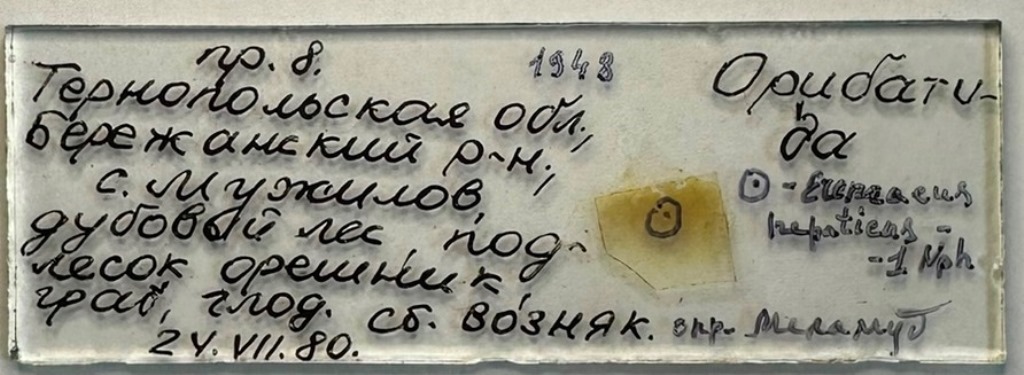 пр. 8.
1948
Тернопольская обл.,
Бережанский р-н.,
с. Мужилов,
дубовый лес, под-
лесок орешник,
граб, глод. сб. Возняк.
24.VII.80.
Орибати-
да
- Euptacus
hepaticus -
-1 Nph
опр. Меламуд